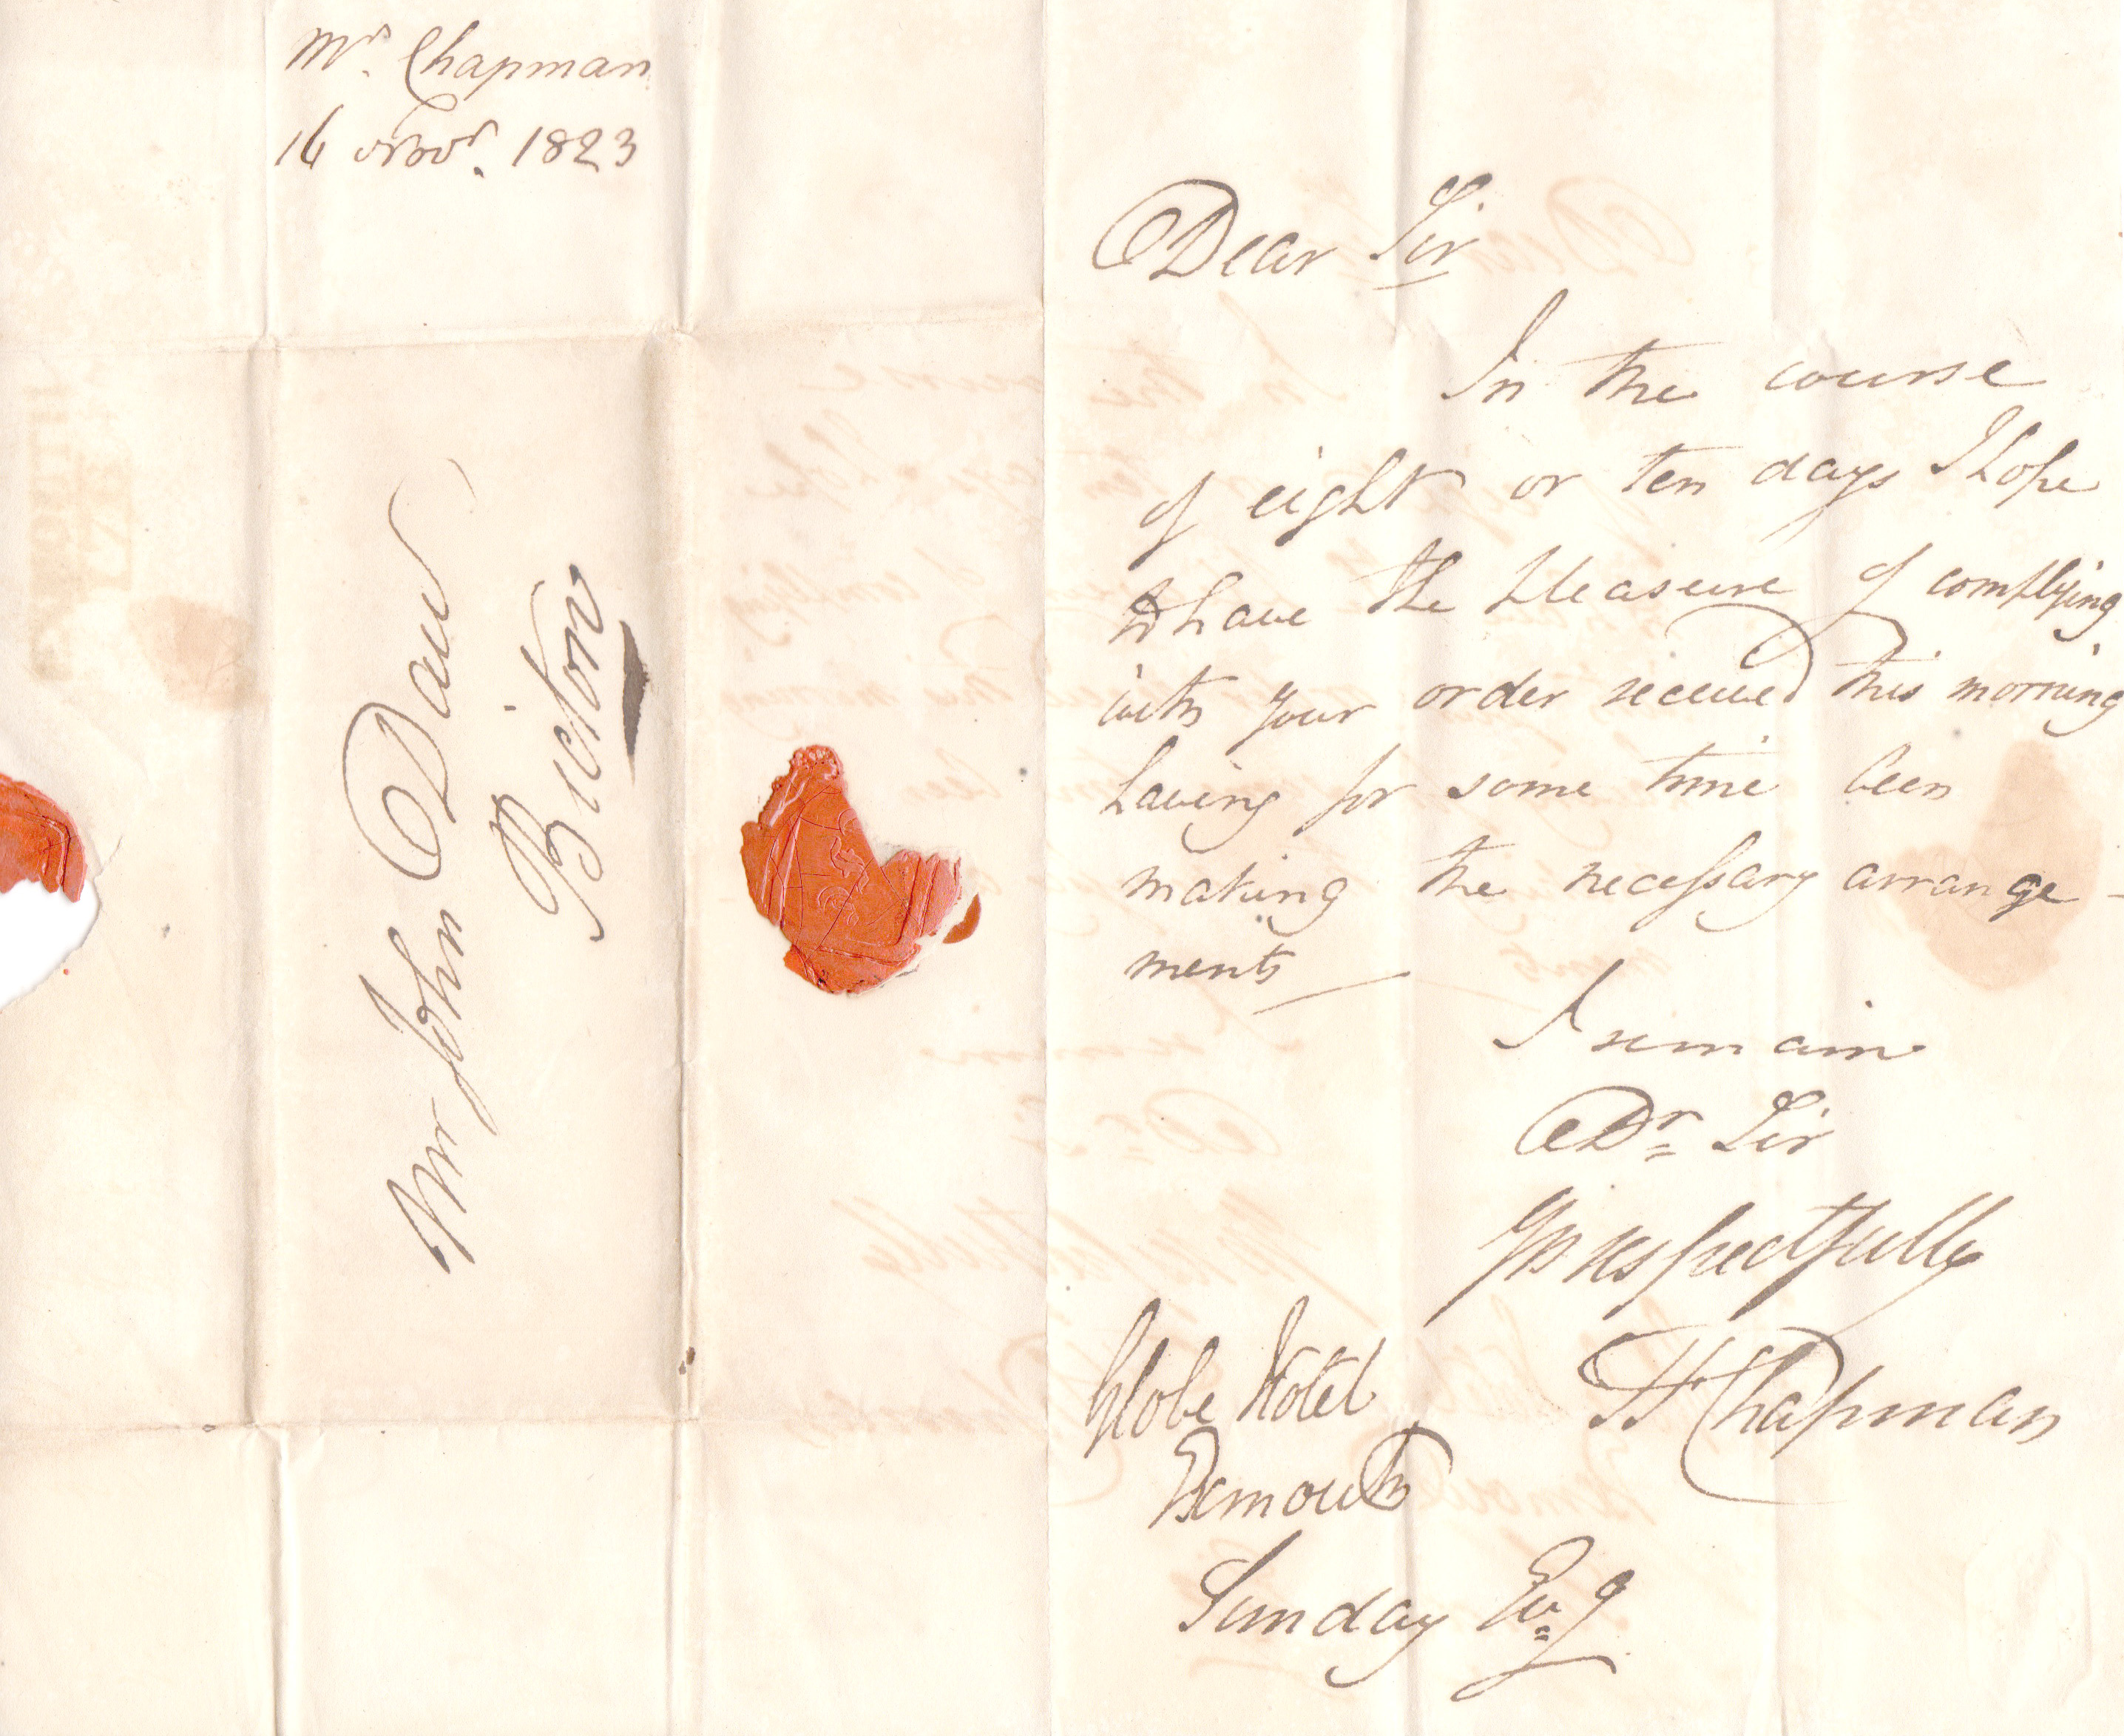 Mr. Chapman
16 Novr. 1823
Mr John Daw
Bicton
Dear Sir
In the course
of eight or ten days I hope
to have the pleasure of complying
with your order received this morning
having for some time been
making the necessary arrange-
ments
I remain
Dr Sir
Yrs respectfully
H Chapman
Globe Hotel
Exmouth
Sunday Evg